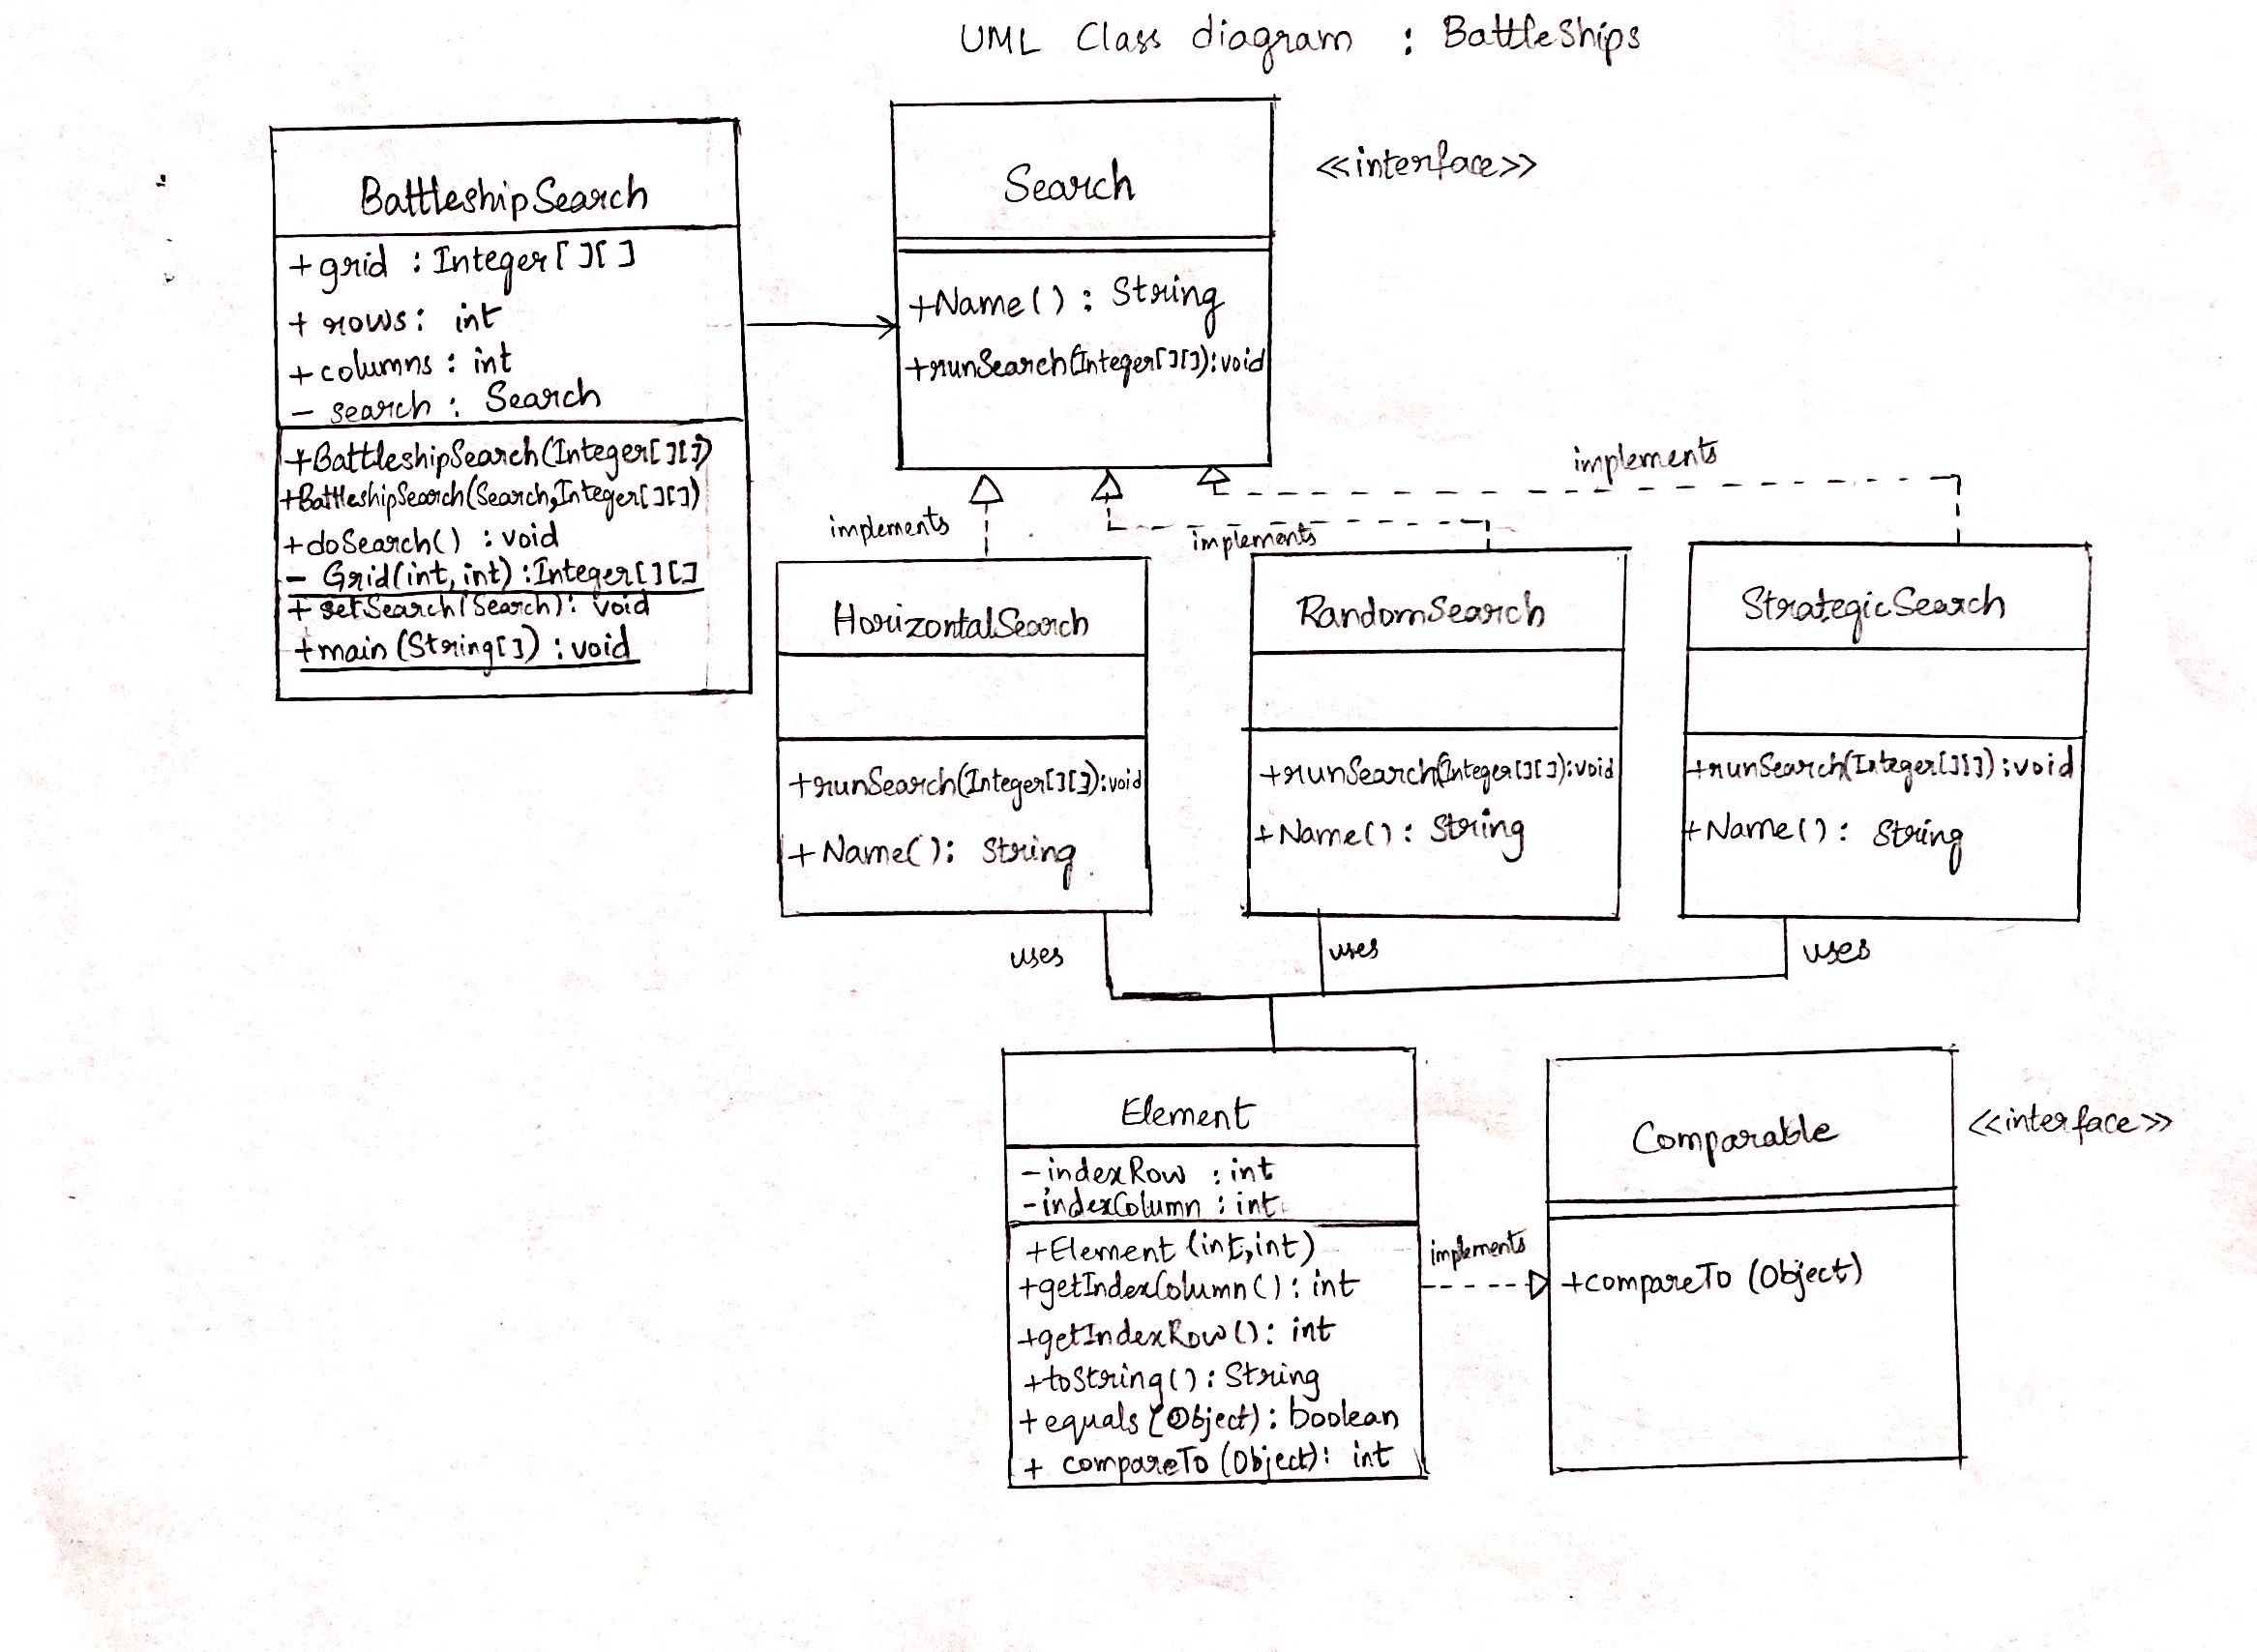 UML Class diagram : BattleShips
BattleshipSearch
+ grid : Integer[][]
+ rows : int
+ columns : int
- search : Search
+BattleshipSearch(Integer[][])
+BattleshipSearch(Search,Integer[][])
+doSearch() : void
- Grid(int, int) : Integer[][]
+ setSearch(Search): void
+main (String[]) : void
Search
<<interface>>
+Name() : String
+runSearch(Integer[][]):void
implements
implements
implements
HorizontalSearch
+runSearch(Integer[][]):void
+ Name(): String
RandomSearch
+runSearch(Integer[][]):void
+ Name() : String
StrategicSearch
+runSearch(Integer[][]):void
+ Name() : String
uses
uses
uses
Element
- indexRow : int
- indexColumn : int
+Element (int,int)
+getIndexColumn() : int
+getIndexRow() : int
+toString() : String
+ equals (Object) : boolean
+ compareTo (Object) : int
implements
Comparable
<<interface>>
+compareTo (Object)